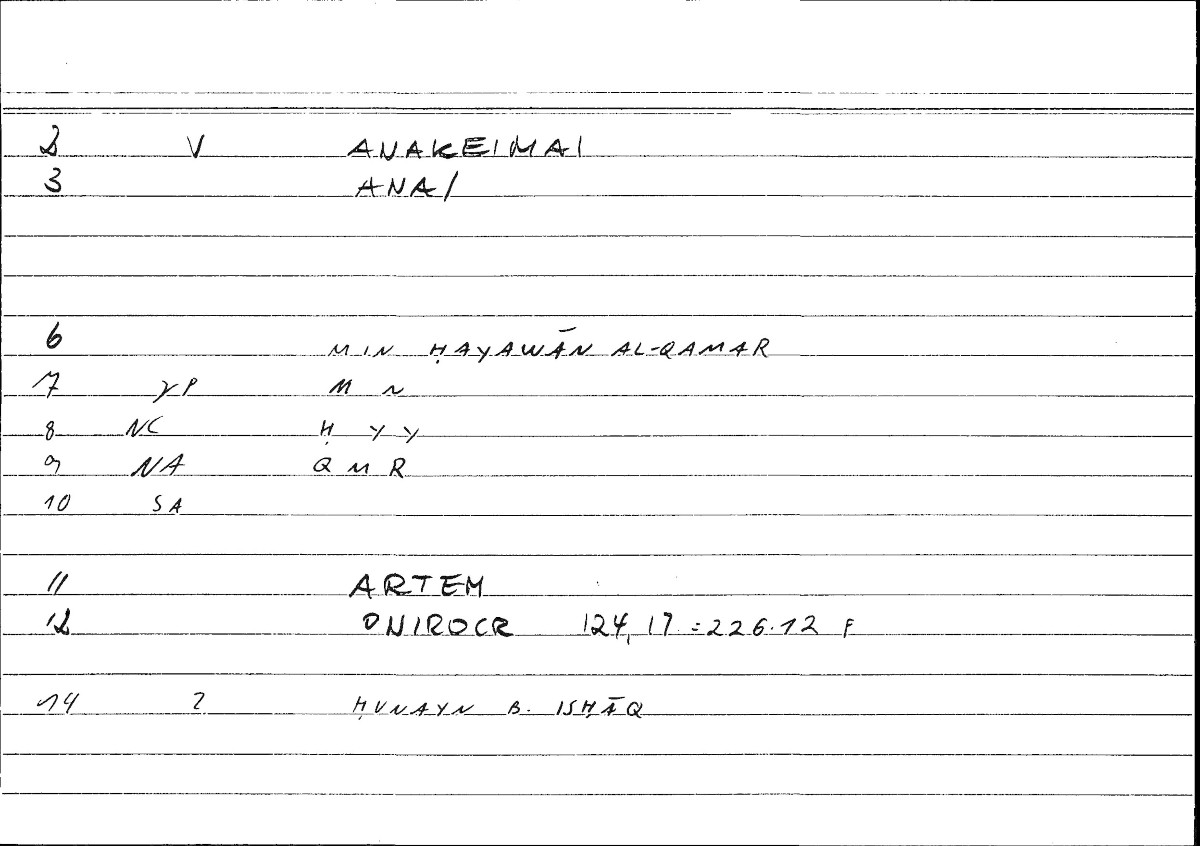 2 V ANAKEIMAI
3 ANA/
6 MIN ḤAYAWĀN AL-QAMAR
7 γP M N
8 NC Ḥ Y Y
9 NA Q M R
10 SA
11 ARTEM
12 ONIROCR 124,17 = 226.12 F
14 2 ḤUNAYN B. ISḤĀQ